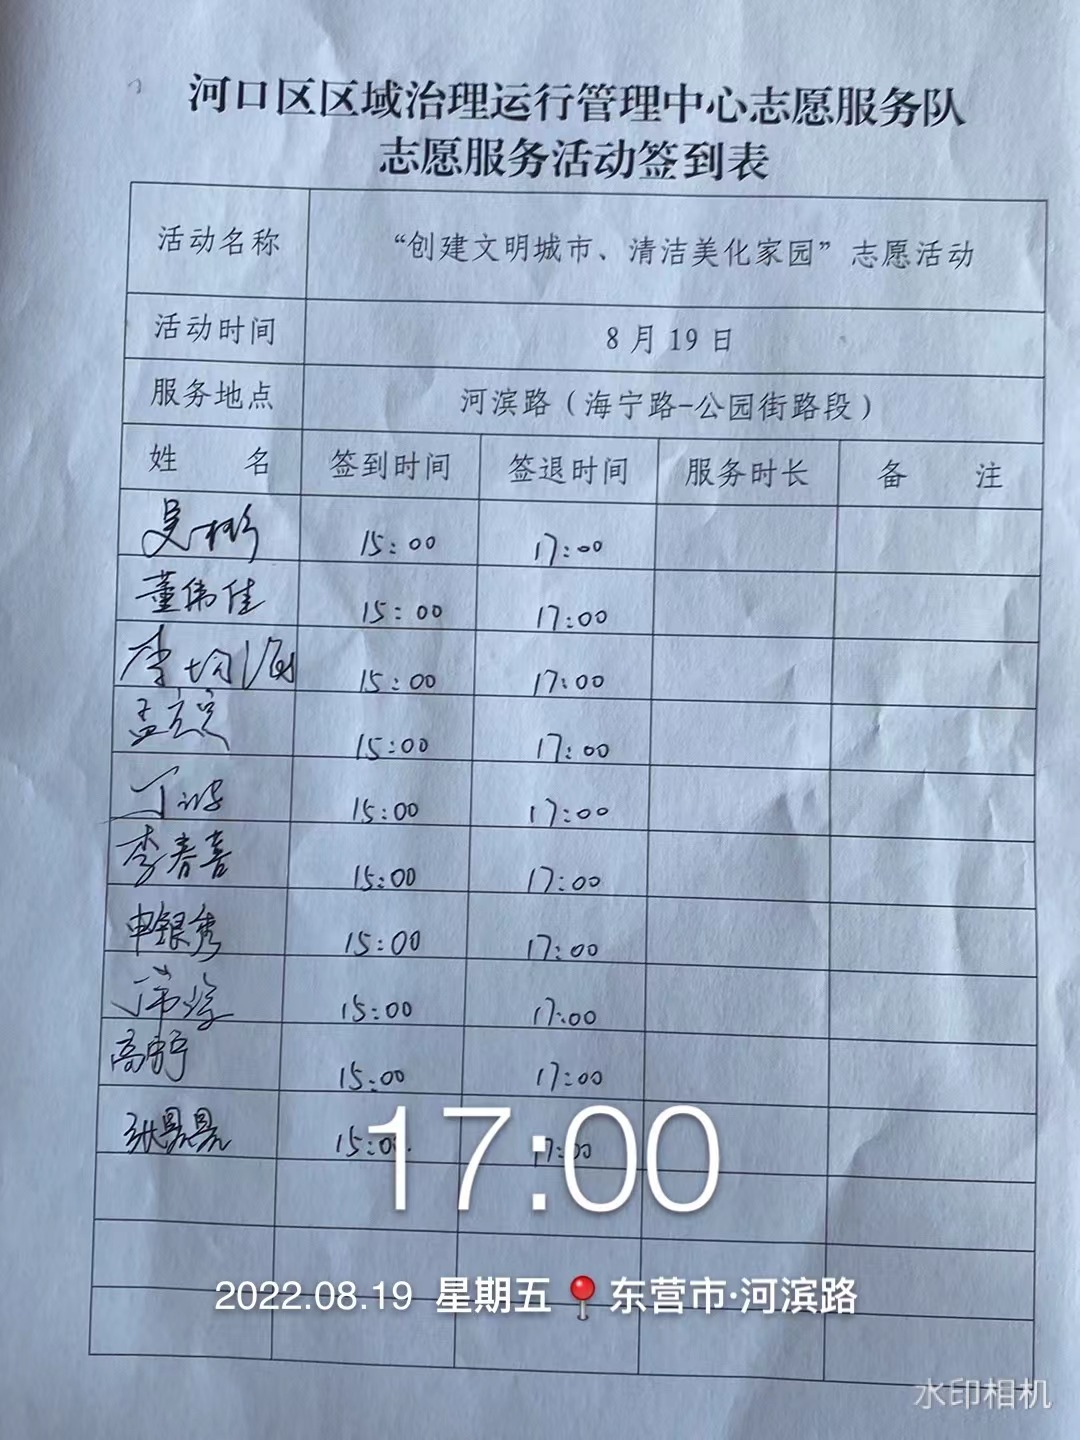 河口区区域治理运行管理中心志愿服务队
志愿服务活动签到表
活动名称 “创建文明城市、清洁美化家园”志愿活动
活动时间 8月19日
服务地点 河滨路（海宁路-公园街路段）
姓 名 签到时间 签退时间 服务时长 备 注
吴彬 15:00 17:00
董伟佳 15:00 17:00
李 15:00 17:00
孟 15:00 17:00
丁 15:00 17:00
李春喜 15:00 17:00
申银秀 15:00 17:00
15:00 17:00
高宁 15:00 17:00
张晃晃 15:00 17:00
17:00
2022.08.19 星期五 东营市·河滨路
水印相机